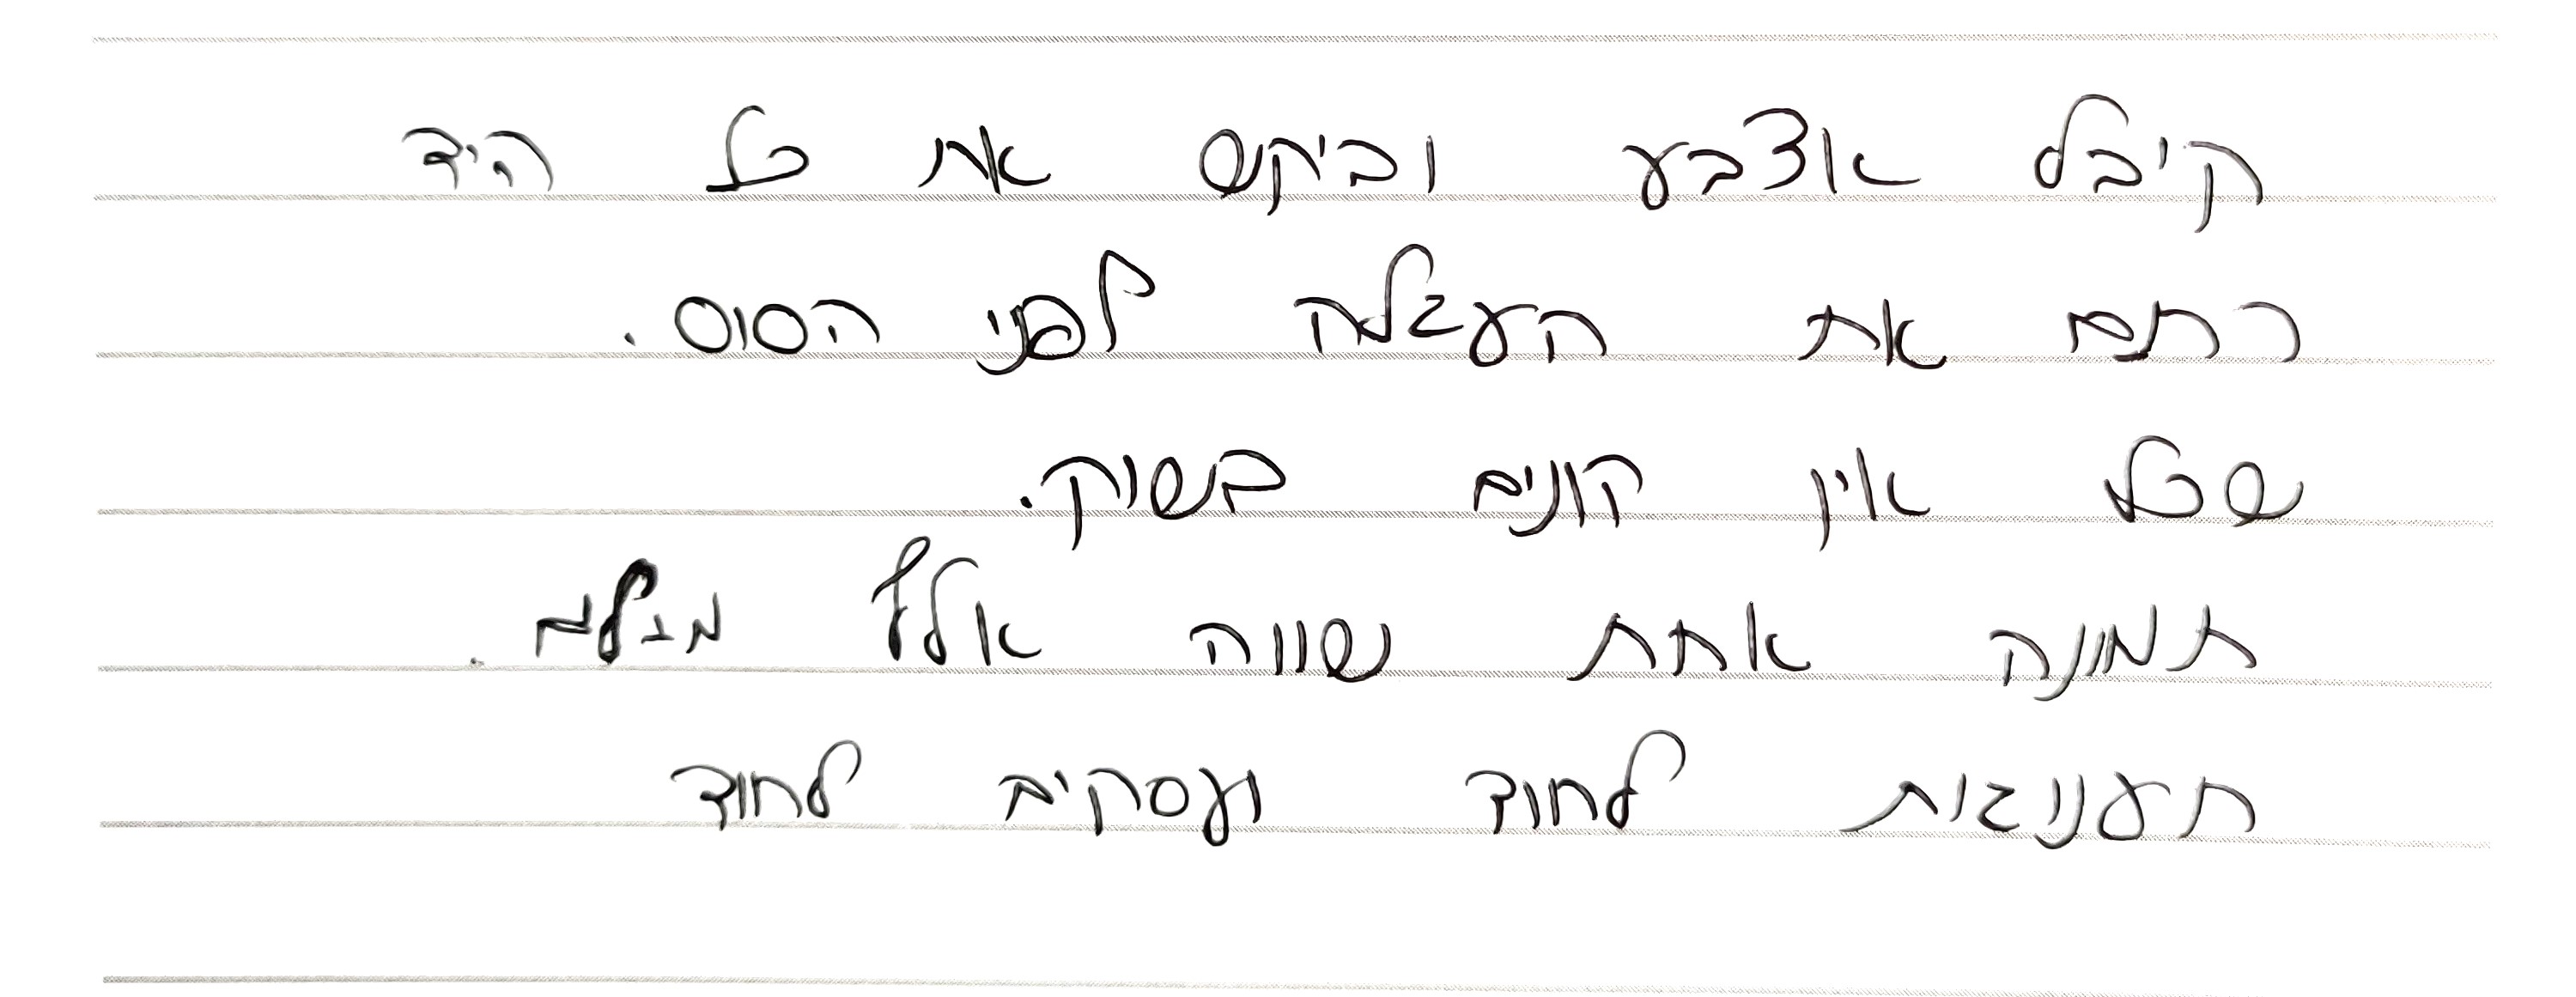 קיבל אצבע וביקש את כל היד
רתם את העגלה לפני הסוס.
שכל אין קונים בשוק.
תמונה אחת שווה אלף מילים.
תענוגות לחוד ועסקים לחוד